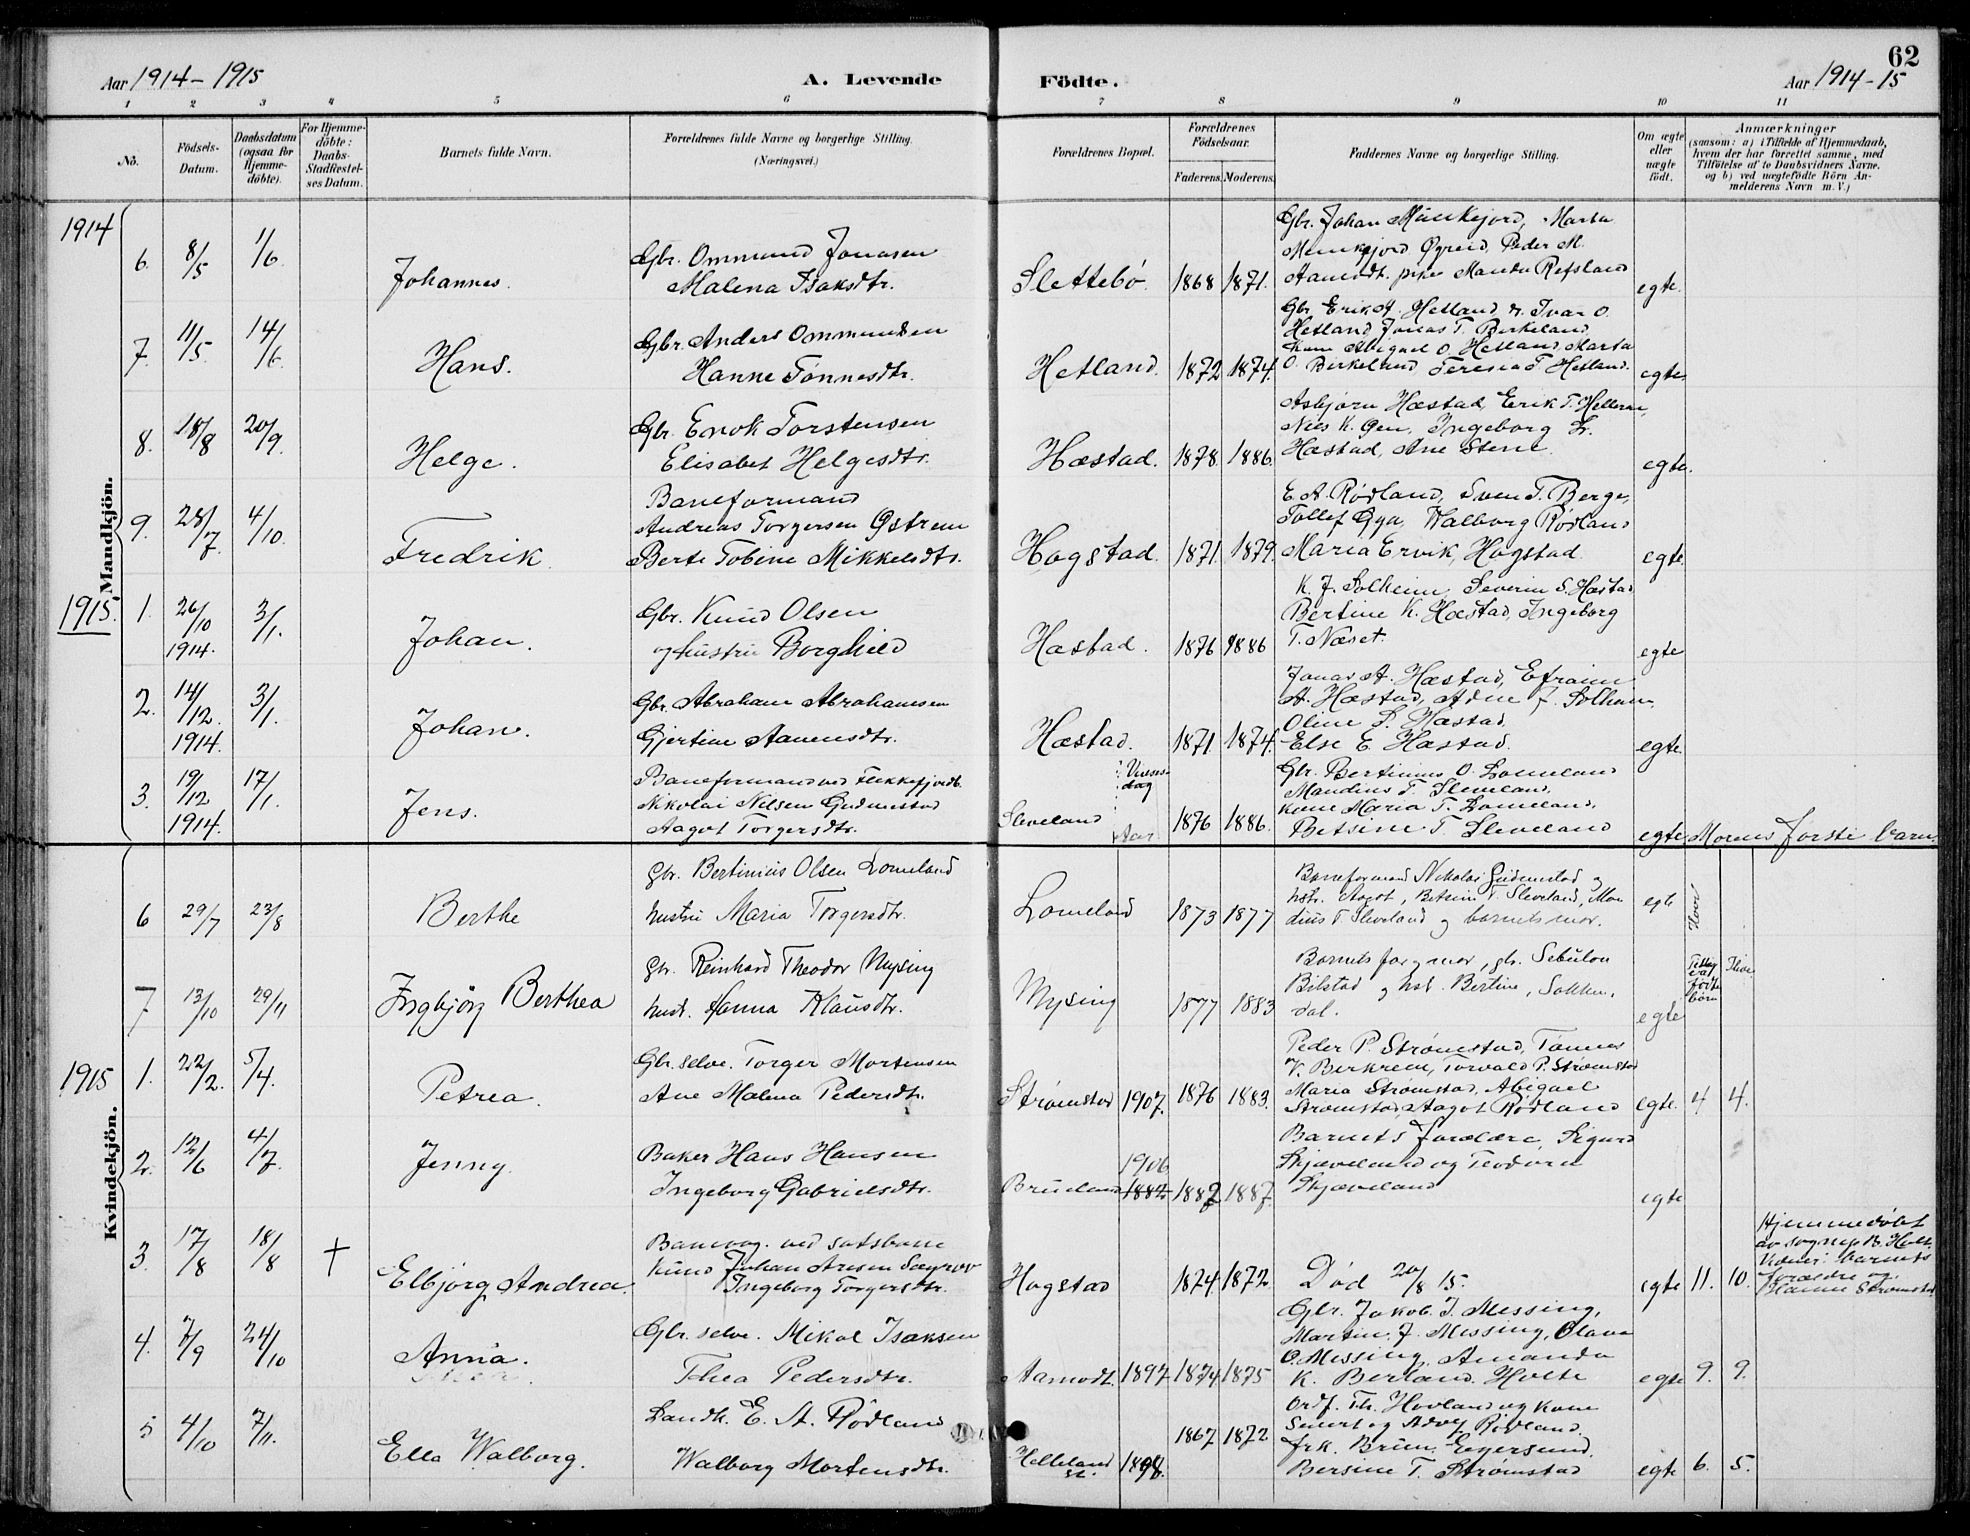 Aar 1914 - 1915
A. Levende
Födte.
Aar 1914 - 15
62
1 2 3 4 5 6 7 8 9 10 11
No.
Födsels-
Datum.
Daabsdatum
(ogsaa for
Hjemme-
döbte).
For Hjemme-
döbte:
Daabs-
Stadfæstel-
ses Datum.
Barnets fulde Navn.
Forældrenes fulde Navne og borgerlige Stilling.
(Næringsvei.)
Forældrenes Bopæl.
Forældrenes
Födselsaar.
Faderens. Moderens.
Faddernes Navne og borgerlige Stilling.
Om ægte
eller
uægte
födt.
Anmærkninger
(saasom: a) i Tilfælde af Hjemmedaab,
hvem der har forrettet samme, med
Tilföielse af to Daabsvidners Navne,
og b) ved uægtefödte Börn An-
melderens Navn m. V.)
Mandkjön.
1914
6. 8/5 1/6 Johannes.
Gbr. Ommund Jonasen
Malena Isaksdtr.
Slettebö 1868 1871.
Gbr. Johan Munkejord, Marta
Munkejord Øgreid, Peder M.
Aamodt. pike Manda Refsland
egte.
7. 11/5 14/6 Hans.
Gbr. Anders Ommundsen
Hanne Tönnesdtr.
Hetland. 1872 1874.
Gbr. Erik A. Hetland, Ivar O.
Hetland Jonas T. Birkeland,
Kone Abigael O. Hetland Marta
O. Birkeland Teresia T. Hetland.
egte.
8. 18/8 20/9. Helge.
Gbr. Enok Torstensen
Elisabet Helgesdtr.
Hæstad. 1878. 1886.
Asbjørn Hæstad, Erik T. Helleren,
Nils K. Gen, Ingeborg L.
Hæstad, Ane Stene.
egte.
9. 28/7. 4/10. Fredrik.
Baneformand
Andreas Torgersen Ystrem
Berte Tobine Mikkelsdtr.
Hogstad. 1871 1879.
E. A. Rødland, Sven T. Berge,
Tollef Gya, Walborg Rødland
Maria Ervik, Hogstad.
egte.
1915.
1. 26/10 1914. 3/1. Johan.
Gbr. Knud Olsen
og hustru Borghild
Hæstad. 1876 1886
K. J. Solheim, Severin S. Hæstad
Bertine K. Hæstad, Ingeborg
T. Næset.
egte
2. 14/12. 1914. 3/1. Johan.
Gbr. Abraham Abrahamsen
Gjertine Aanensdtr.
Hæstad. 1871 1874.
Jonas A. Hæstad, Efraim
A. Hæstad, Adne J. Solheim,
Oline S. Hæstad,
Else E. Hæstad.
egte.
3. 19/12 1914. 17/1. Jens.
Baneformand ved Flekkefjordb.
Nikolai Nilsen Gudmestad
Aagot Torgersdtr.
Sleveland
Vielses-
dag
Aar.
1876 1886.
Gbr. Bertinius O. Lomeland
Mandius T. Sleveland,
Kone Maria T. Lomeland,
Betsine T. Sleveland
egte. Morens förste barn.
Kvindekjön.
6 29/7 23/8 Berthe
Gbr. Bertinius Olsen Lomeland
hustru Maria Torgersdtr.
Lomeland 1873 1877
Baneformand Nikolai Gudmestad og
hstr. Aagot, Betsine T. Sleveland, Man
dius T. Sleveland og barnets mor.
egte
7 13/10 29/11 Ingbjörg Berthea
Gbr. Reinhard Theodor Mysing
hust. Hanna Klausdtr.
Mysing 1877 1883
Barnets far og mor, gbr. Sebulon
Bilstad og hst. Bertine, Sokken,
dal.
egte
1915
1. 22/2. 5/4. Petrea.
Gbr. selve. Torger Mortensen
Ane Malena Pedersdtr.
Strömstad 1907. 1876 1883.
Peder P. Strømstad, Tönnes
V. Berkreim, Torvald P. Strømstad
Maria Strømstad, Abigael
Strømstad, Aagot Rødland
egte. 4 4.
2. 12/6 4/7. Jenny.
Baker Hans Hansen
Ingeborg Gabrielsdtr.
Brueland 1906 1882 1882 1887.
Barnets forældre, Sigurd
Skjæveland og Teodora
Skjæveland
egte
3. 17/8 18/8 † Elbjörg Andrea.
Banevog. ved statsbane
Knud Johan Aresen Sægrov
Ingeborg Torgersdtr.
Hogstad 1874. 1872
Död 20/8 15.
egte 11. 10.
Hjemmedöbt
av sognepr. Holt.
Vidner: barnets
forældre og
Strømstad
4. 7/9 24/10 Anna.
Gbr. selve. Mikal Isaksen
Thea Pedersdtr.
Aamodt. 1897 1874 1875
Gbr. Jakob J. Messing,
Martin J. Messing, Olava
O. Messing, Amanda
K. Berland. Holte
egte 9. 9.
5 4/10 7/11. Ella Walborg.
Landh. E. A. Rödland
Walborg Mortensdtr.
Helleland
st. 1898. 1867 1872
Ordf. Th. Hovland og kone
Sivert og Adolf Rödland.
frk. Bruun Egersund.
Bersine T. Strømstad
egte 6. 5.